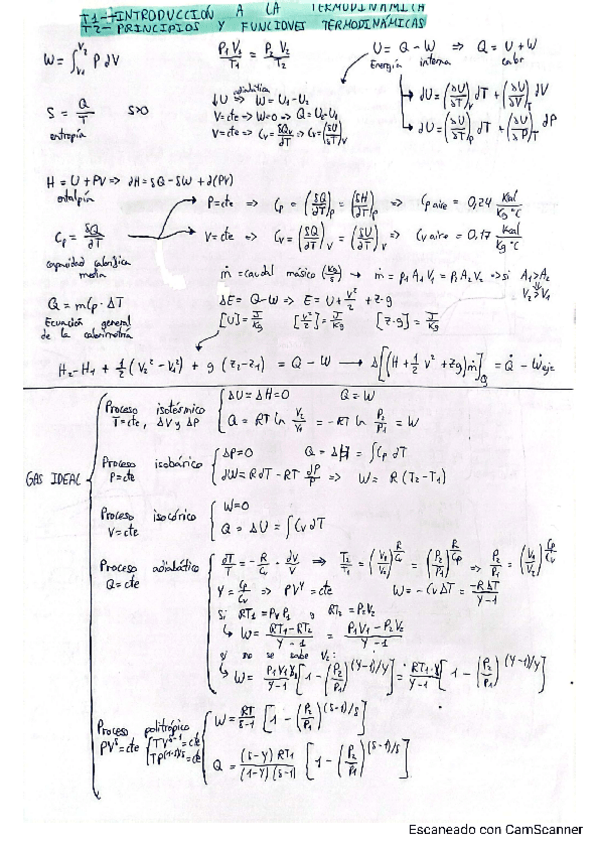 T1-INTRODUCCIÓN A LA TERMODINÁMICA
T2-PRINCIPIOS Y FUNCIONES TERMODINÁMICAS
W = ∫_{V1}^{V2} P dV
P1 V1 / T1 = P2 V2 / T2
U = Q - W ⇒ Q = U + W
Energía interna calor
S = Q/T S>0
entropía
adiabática
↓U ⇒ W = U1 - U2
V=cte ⇒ W=0 ⇒ Q = U2-U1
V=cte ⇒ Cv = δQv/∂T ⇒ Cv = (δU/δT)V
→ ∂U = (∂U/∂T)V dT + (∂U/∂V)T dV
→ ∂U = (∂U/∂T)P dT + (∂U/∂P)T dP
H = U + PV ⇒ ∂H = δQ - δW + ∂(PV)
entalpía
Cp = δQ/∂T
capacidad calorífica
media
P=cte ⇒ Cp = (δQ/∂T)P = (δH/∂T)P ⇒ Cp aire = 0,24 Kcal/Kg°C
V=cte ⇒ Cv = (δQ/∂T)V = (δU/∂T)V ⇒ Cv aire = 0,17 Kcal/Kg°C
ṁ = caudal másico (Kg/s) → ṁ = ρ1 A1 V1 = ρ2 A2 V2 ⇒ si A1 > A2
V2 > V1
Q = m Cp · ΔT
Ecuación general
de la calorimetría
ΔE = Q - W ⇒ E = U + v²/2 + z·g
[U] = J/Kg [v²/2] = J/Kg [z·g] = J/Kg
H2 - H1 + 1/2 (V2² - V1²) + g (z2 - z1) = Q - W → Δ[(H + 1/2 v² + zg)ṁ] = Q̇ - Ẇeje
GAS IDEAL
Proceso isotérmico
T=cte, ΔV y ΔP
ΔU = ΔH = 0 Q = W
Q = RT ln V2/V1 = -RT ln P2/P1 = W
Proceso isobárico
P=cte
ΔP = 0 Q = ΔH = ∫Cp ∂T
dW = R dT - RT ∂P/P ⇒ W = R (T2 - T1)
Proceso isocórico
V=cte
W = 0
Q = ΔU = ∫Cv ∂T
Proceso adiabático
Q=cte
∂T/T = - R/Cv · ∂V/V ⇒ T2/T1 = (V1/V2)^{R/Cv} = (P2/P1)^{R/Cp} ⇒ P2/P1 = (V1/V2)^{Cp/Cv}
γ = Cp/Cv ⇒ PV^γ = cte W = -Cv ΔT = -RΔT/γ-1
Si RT1 = P1V1 y RT2 = P2V2
↳ W = RT1 - RT2 / γ-1 = P1V1 - P2V2 / γ-1
si no se sabe V2:
↳ W = P1V1/γ-1 [1 - (P2/P1)^{(γ-1)/γ}] = RT1/γ-1 [1 - (P2/P1)^{(γ-1)/γ}]
Proceso politrópico
PV^δ = cte
TV^{δ-1} = cte
TP^{(1-δ)/δ} = cte
W = RT/δ-1 [1 - (P2/P1)^{(δ-1)/δ}]
Q = (δ-γ) RT1 / (1-γ)(δ-1) [1 - (P2/P1)^{(δ-1)/δ}]
Escaneado con CamScanner